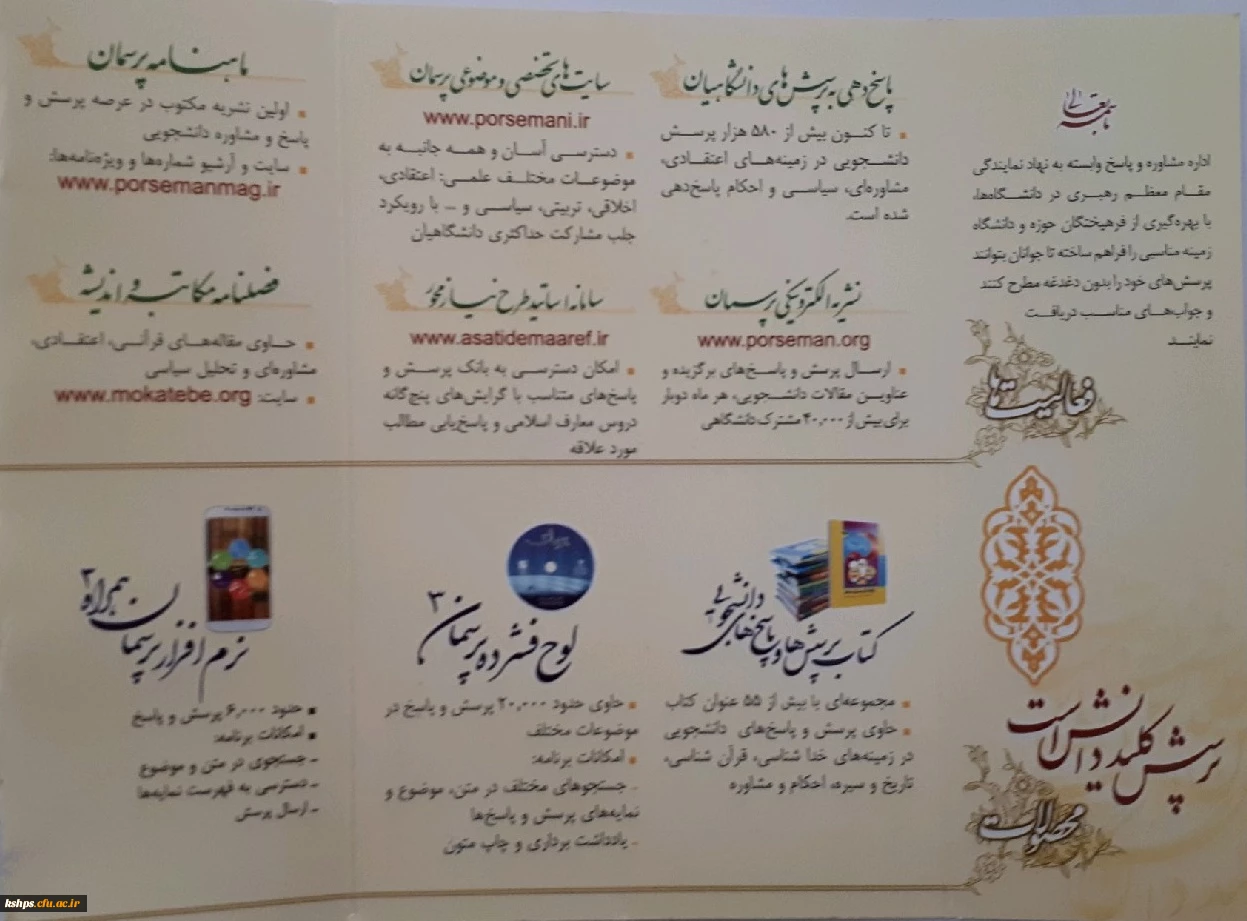 باسمه تعالی
اداره مشاوره و پاسخ وابسته به نهاد نمایندگی
مقـام معظـم رهبـری در دانشـگاه‌ها،
با بهره‌گیری از فرهیختگان حوزه و دانشگاه
زمینه مناسبی را فراهم ساخته تا جوانان بتوانند
پرسش‌های خود را بدون دغدغه مطرح کنند
و جواب‌هـای مناسـب دریافـت
نماینـد
فعالیت‌ها
پاسخ‌دهی به پرسش‌های دانشگاهیان
تا کنـون بیش از ۵۸۰ هزار پرسـش
دانشـجویی در زمینه‌هـای اعتقـادی،
مشاوره‌ای، سیاسـی و احکام پاسخ‌دهی
شده است.
نشریه الکترونیکی پرسمان
www.porseman.org
ارسـال پرسش و پاسـخ‌های برگزیده و
عناویـن مقالات دانشـجویی، هر ماه دوبار
برای بیش از ۴۰,۰۰۰ مشترک دانشگاهی
سایت‌های تخصصی و موضوعی پرسمان
www.porsemani.ir
دسترسی آسـان و همـه جانبـه به
موضوعـات مختلـف علمـی: اعتقادی،
اخلاقی، تربیتی، سیاسی و ... با رویکرد
جلب مشارکت حداکثری دانشگاهیان
سامانه اساتید طرح نیاز محور
www.asatidemaaref.ir
امکان دسترسـی به بانک پرسـش و
پاسخ‌های متناسب با گرایش‌های پنج‌گانه
دروس معارف اسلامی و پاسخ‌یابی مطالب
مورد علاقه
ماهنامه پرسمان
اولین نشریه مکتوب در عرصه پرسش و
پاسخ و مشاوره دانشجویی
سایت و آرشیو شماره‌ها و ویژه‌نامه‌ها:
www.porsemanmag.ir
فصلنامه مکاتبه و اندیشه
حـاوی مقاله‌هـای قرآنـی، اعتقـادی،
مشاوره‌ای و تحلیل سیاسی
سایت: www.mokatebe.org
پرسش کلید دانش است
محصولات
کتاب پرسش‌ها و پاسخ‌های دانشجویی
مجموعه‌ای با بیش از ۵۵ عنوان کتاب
حاوی پرسش و پاسخ‌های دانشجویی
در زمینه‌های خدا شناسی، قرآن شناسی،
تاریخ و سیره، احکام و مشاوره
لوح فشرده پرسمان ۳
حاوی حدود ۲۰,۰۰۰ پرسش و پاسخ در
موضوعات مختلف
امکانات برنامه:
- جستجوهای مختلف در متن، موضوع و
نمایه‌های پرسش و پاسخ‌ها
- یادداشت برداری و چاپ متون
نرم افزار پرسمان همراه ۲
حدود ۶,۰۰۰ پرسش و پاسخ
امکانات برنامه:
- جستجوی در متن و موضوع
- دسترسی به فهرست نمایه‌ها
- ارسال پرسش
kshps.cfu.ac.ir